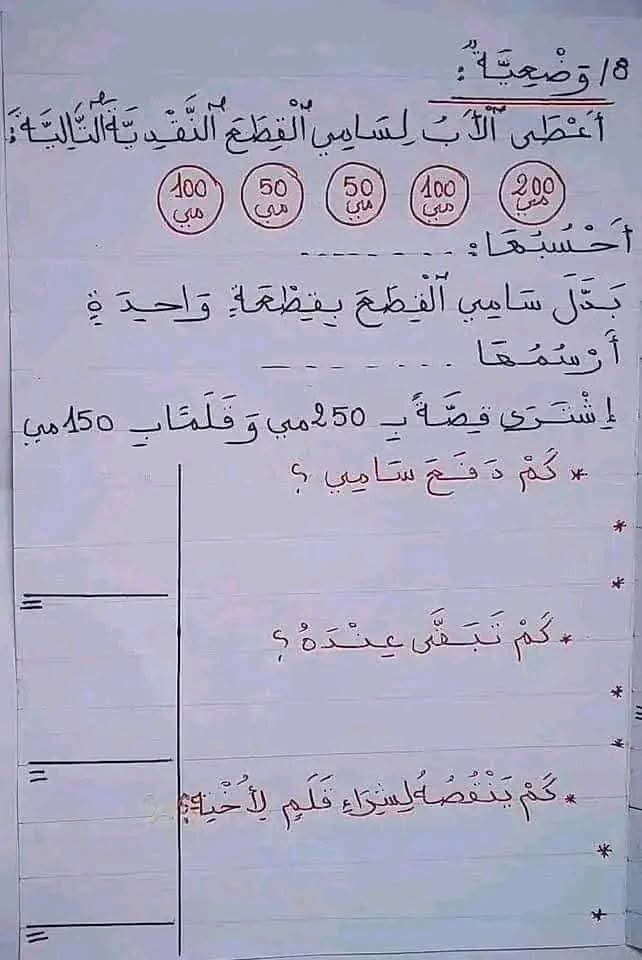 8/ وَضْعِيَّةٌ :
أَعْطَى الْأَبُ لِسَامِي الْقِطَعَ النَّقْدِيَّةَ التَّالِيَةَ :
200 مي 100 مي 50 مي 50 مي 100 مي
أَحْسُبُهَا : ........
بَدَّلَ سَامِي الْقِطَعَ بِقِطْعَةٍ وَاحِدَةٍ
أَرْسُمُهَا ........
إِشْتَرَى قِصَّةً بِ 250 مي وَقَلَمًا بِ 150 مي
* كَمْ دَفَعَ سَامِي ؟
*
*
=
* كَمْ تَبَقَّى عِنْدَهُ ؟
*
*
=
* كَمْ يَنْقُصُهُ لِشِرَاءِ قَلَمٍ لِأُخْتِهِ ؟
*
*
=